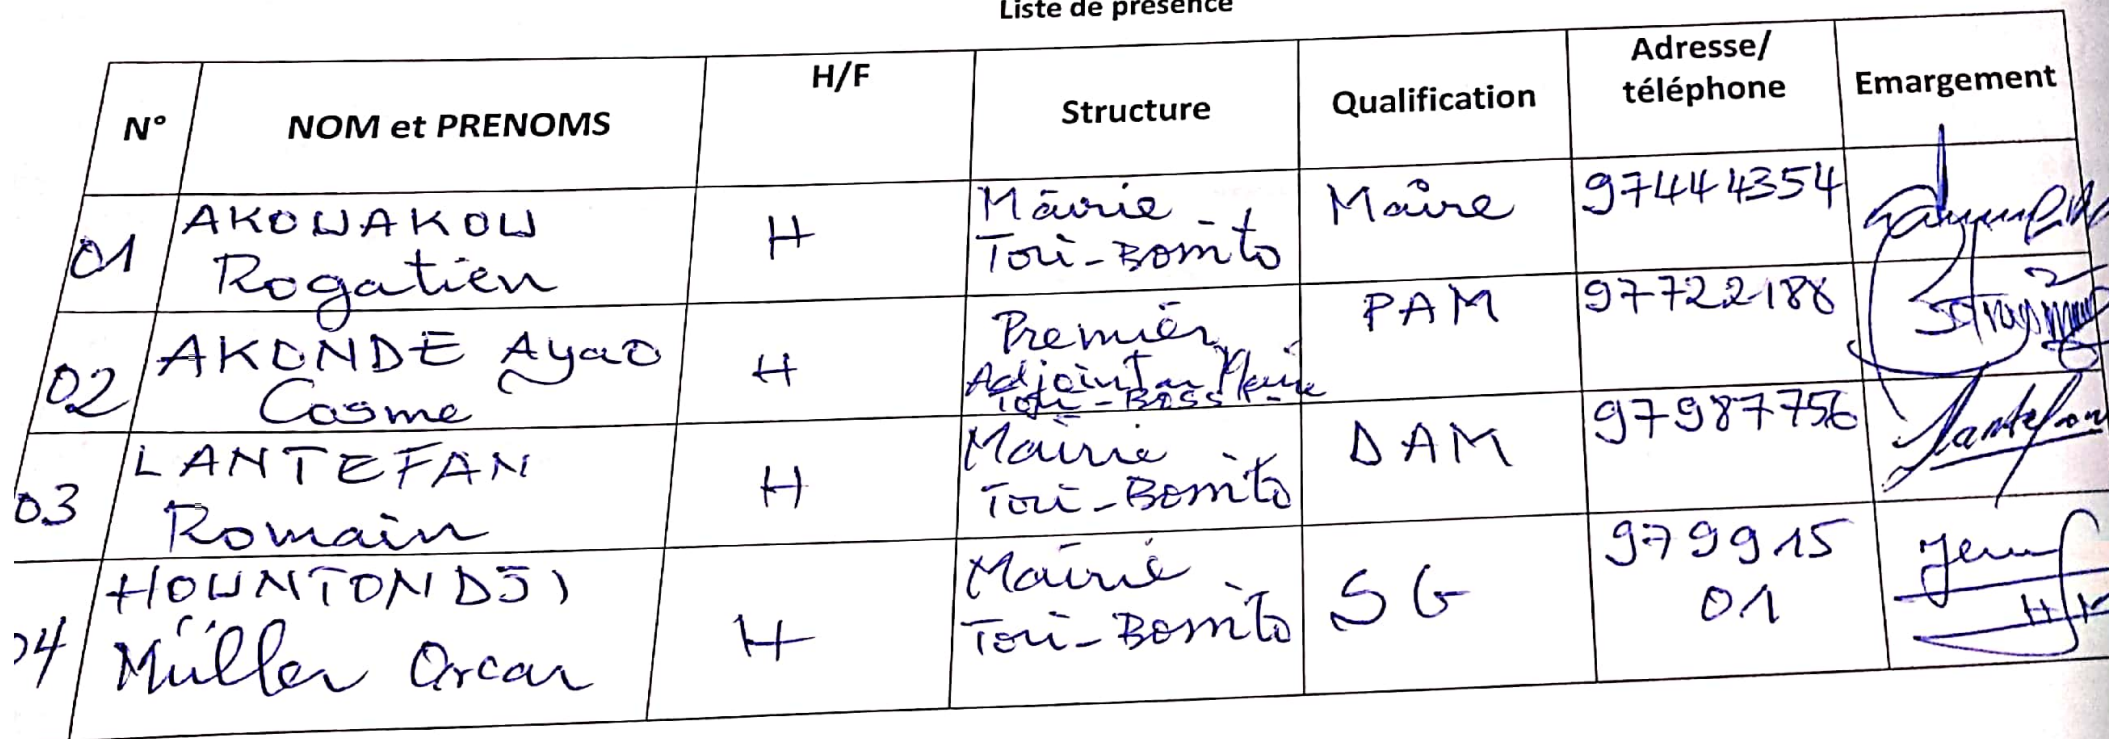 Liste de présence
N° NOM et PRENOMS H/F Structure Qualification Adresse/ téléphone Emargement
01 AKOUAKOU Rogatien H Mairie Tori-Bossito Maire 97444354
02 AKONDE Ayao Cosme H Premier Adjoint au Maire Tori-Bossito PAM 97722188
03 LANTEFAN Romain H Mairie Tori-Bossito DAM 97987756 Lantefan
04 HOUNTONDJI Müller Oscar H Mairie Tori-Bossito SG 979915 01